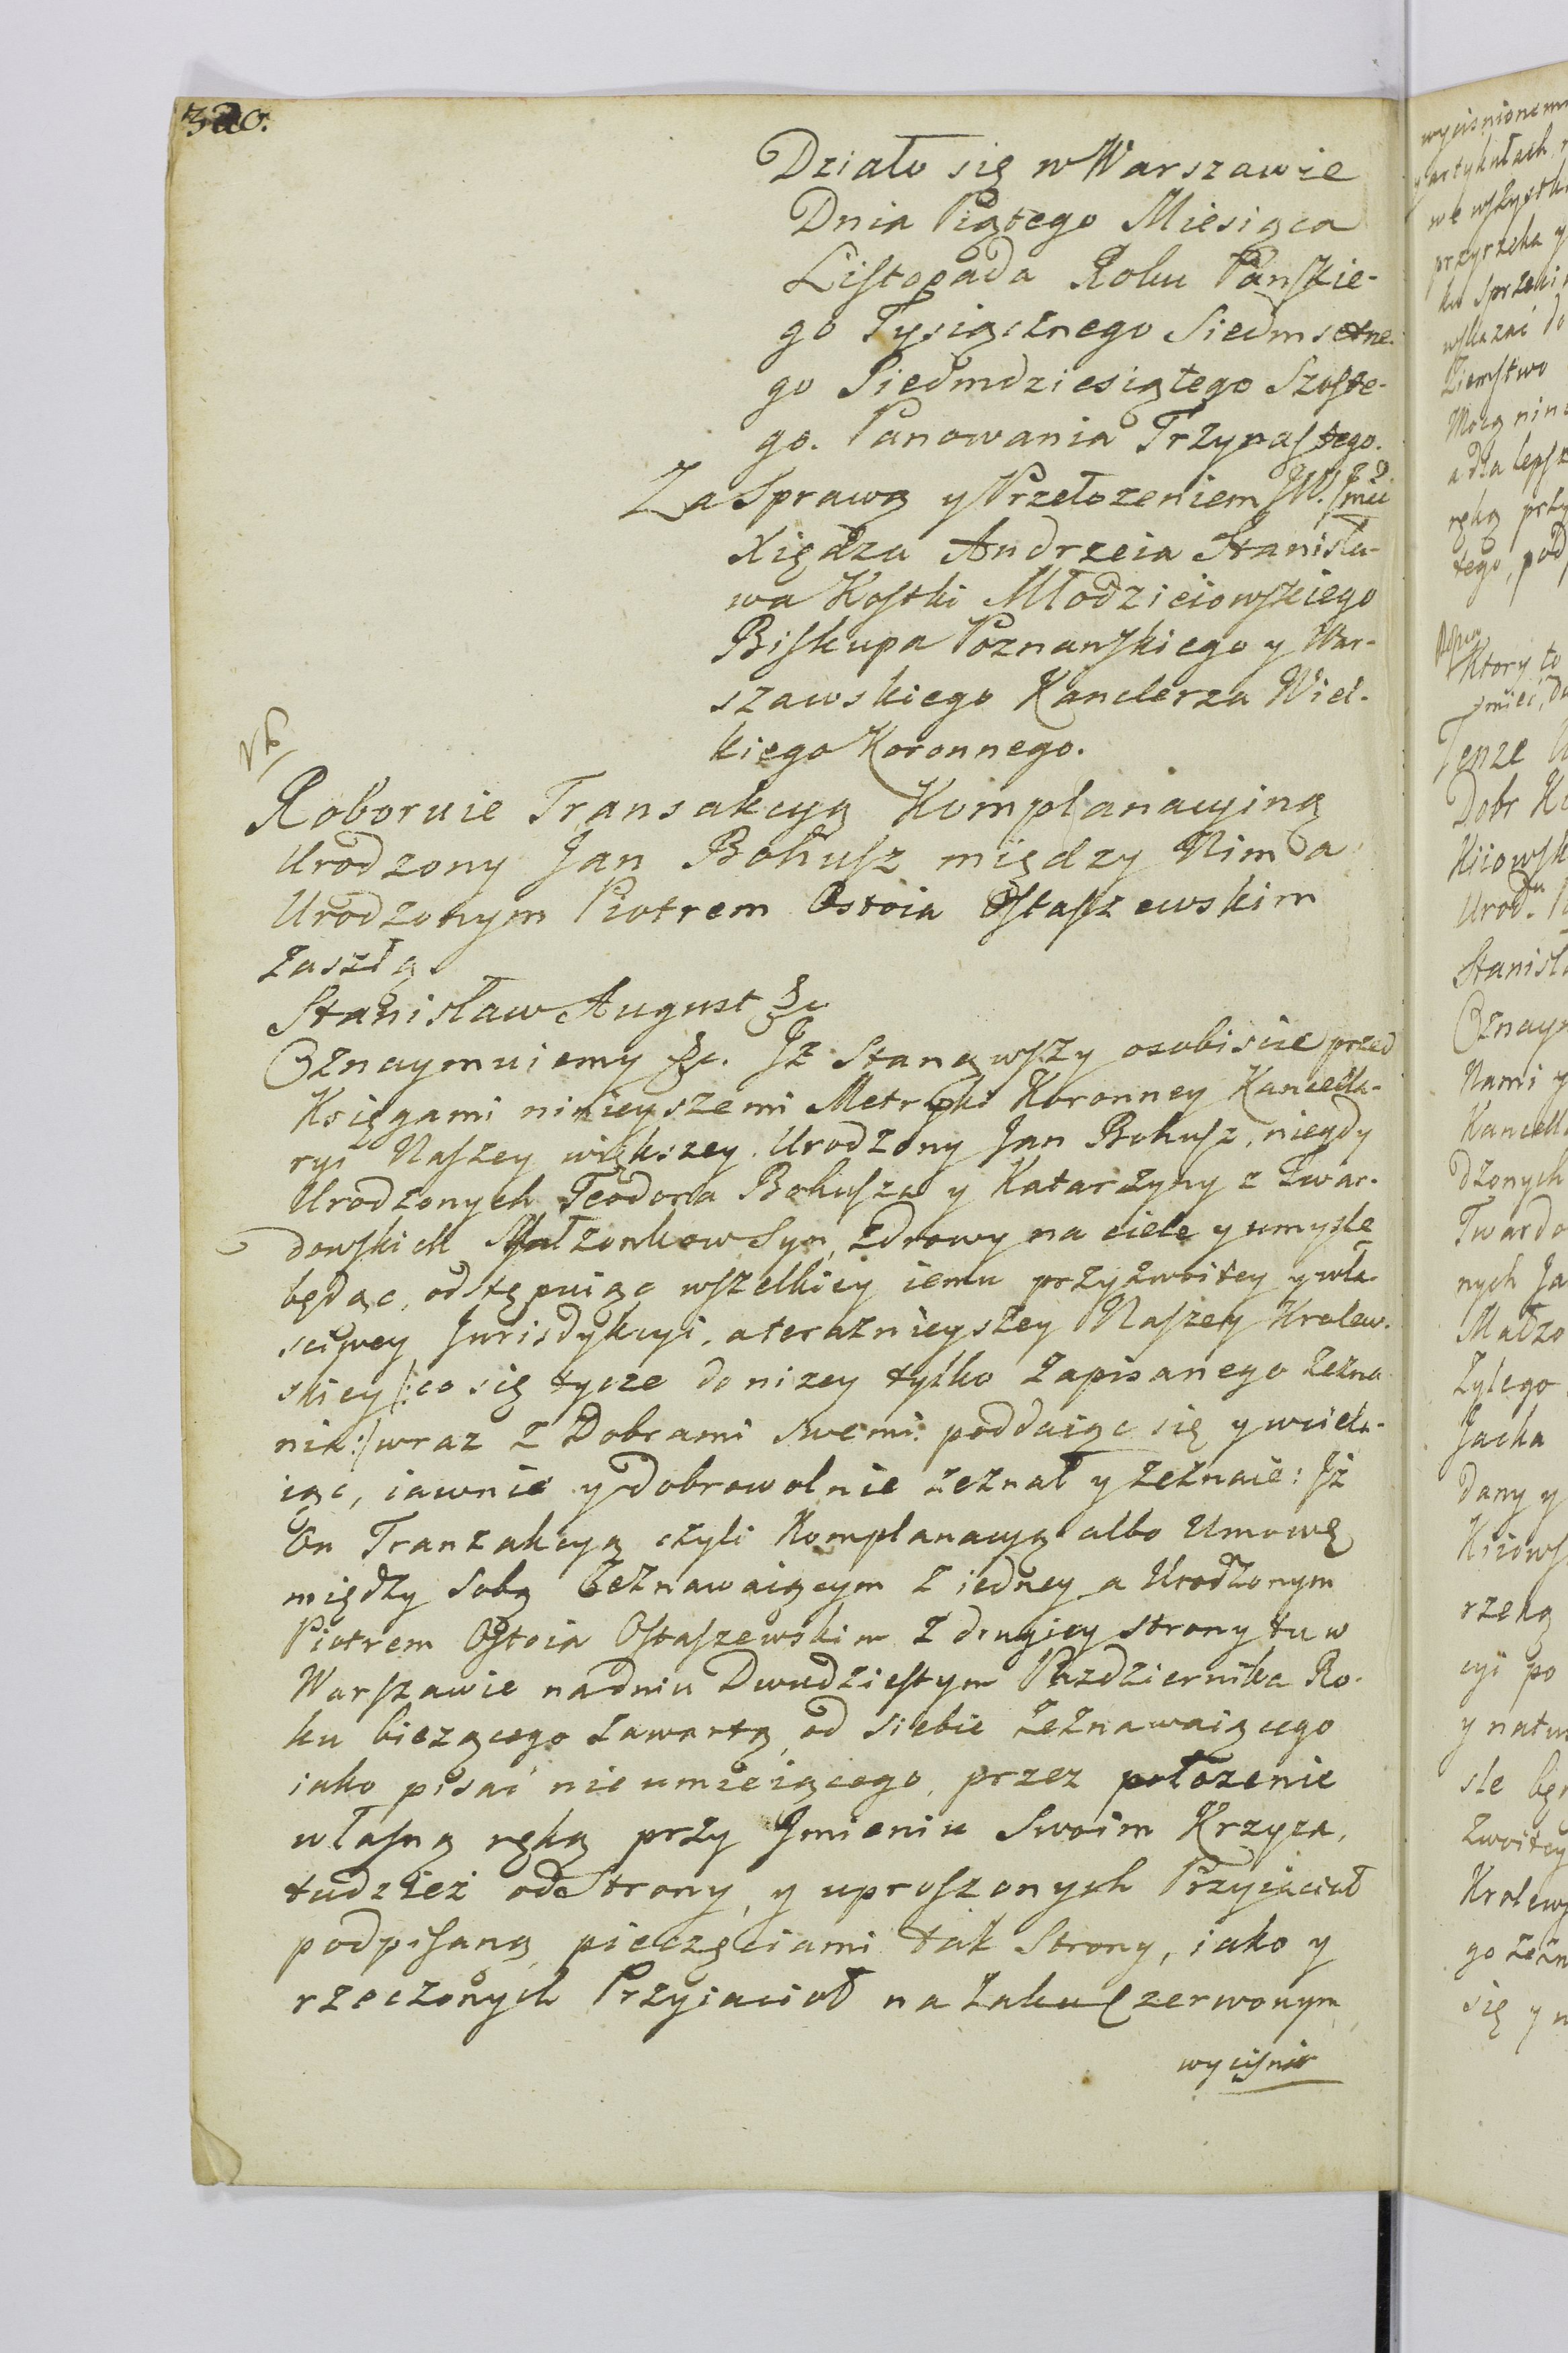 320.
Działo się w Warszawie
Dnia Piątego Miesiąca
Listopada Roku Panskie-
go Tysiącznego Siedmsetne-
go Siedmdziesiątego Szoste-
go. Panowania Trzynastego.
Za Sprawą y Przełozeniem JW. Jmci
Xiędza Andrzeia Stanisła-
wa Kostki Młodzieiowskiego
Biskupa Poznanskiego y War-
szawskiego Kanclerza Wiel-
kiego Koronnego.
Roboruie Transakcyą Komplanacyiną
Urodzony Jan Bohusz między Nim a
Urodzonym Piotrem Ostoia Ostaszewskim
zaszłą.
Stanisław August &c
Oznaymuiemy &c. Jż Stanąwszy osobiscie przed
Księgami ninieyszemi Metryki Koronney Kancella-
ryi Naszey większey Urodzony Jan Bohusz, niegdy
Urodzonych Teodora Bohusza y Katarzyny z Twar-
dowskich Małzonkow Syn, zdrowy na ciele y umysle
będąc, odstępuiąc wszelkiey iemu przyzwoitey y wła-
sciwey Jurisdykcyi, a terazniejszey Naszey Krolew-
skiey /: co się tycze do nizey tylko zapisanego zezna-
nia :/ wraz z Dobrami swemi poddaiąc się y wciela-
iąc, iawnie y dobrowolnie zeznał y zeznaie: Jż
On Tranzakcyą czyli Komplanacyą albo Umowę
między sobą Zeznawaiącym z iedney a Urodzonym
Piotrem Ostoia Ostaszewskim z drugiey strony tu w
Warszawie na dniu Dwudziestym Pazdziernika Ro-
ku biezącego zawartą, od siebie zeznawaiącego
iako pisać nieumieiącego, przez połozenie
własną ręką przy Jmieniu Swoim Krzyza,
tudzież od Strony, y uproszonych Przyiacioł
podpisaną, pieczęciami tak Strony, iako y
rzeczonych Przyiacioł na Laku Czerwonym
wycisnio
wycisnionemi
y artykułach
we wszystki
przyrzeka y
wskazać do
Ziemstwo
Mocą nin
a dla lepsz
ręką przy
tego, pod
Ktory to
Tenze U
Dobr Ki
Kiiowsk
Urod.
Stanisła
Oznaym
Nami y
Kancell
dzonych
Twardo
nych Ja
Małzo
Zylego
Jacka
dany y
Kiiows
rzeką
cyi po
y natu
sle będ
zwoitey
Krolews
go zezn
się y w